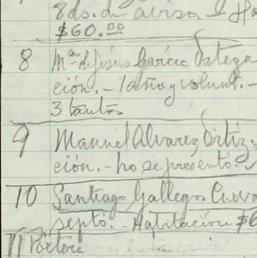 8 ds. de aviso
$60.00
8 Ma. de Jesus Garcia Ortega
ción. - 1 año y volunt. -
3 tantos
9 Manuel Alvarez Ortiz.
ción. - no se presentó
10 Santiago Gallegos Cueva
septó. - Habitación $6
11 Pórtora